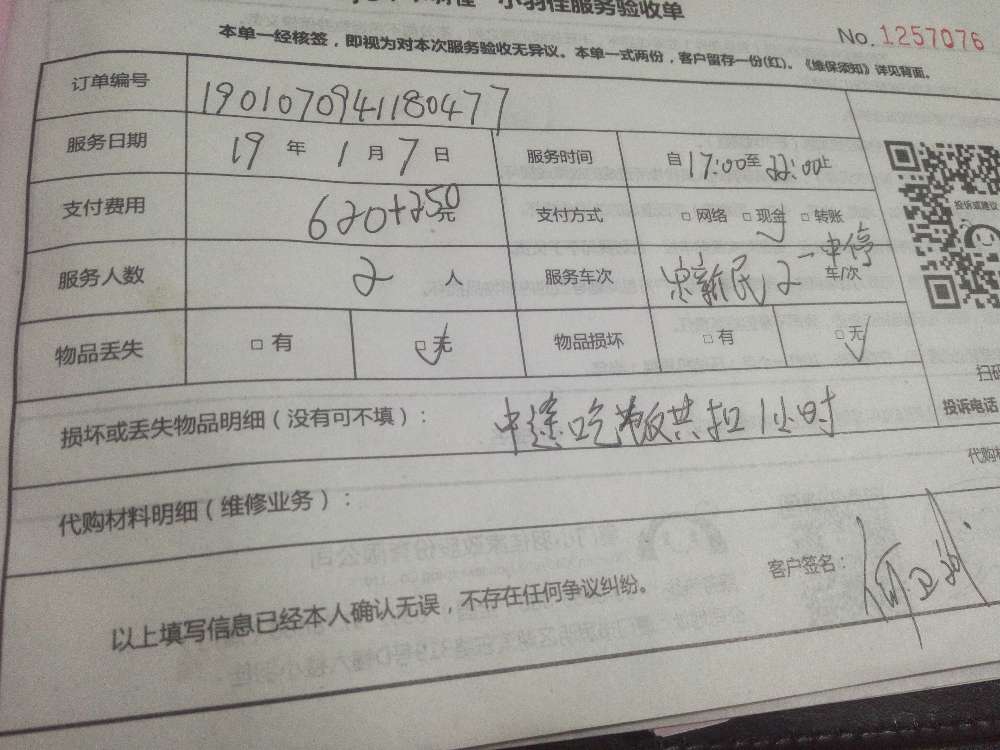 小羽佳服务验收单
No. 1257076
本单一经核签，即视为对本次服务验收无异议。本单一式两份，客户留存一份(红)。《维保须知》详见背面。
订单编号 1901070941180477
服务日期 19 年 1 月 7 日 服务时间 自 17:00 至 22:00 止
支付费用 620+250 元 支付方式 □ 网络 □ 现金 □ 转账
投诉或建议
服务人数 2 人 服务车次 车/次
物品丢失 □ 有 □ 无 物品损坏 □ 有 □ 无
扫码
投诉电话
损坏或丢失物品明细（没有可不填）： 中途吃饭共扣1小时
代购材料明细（维修业务）：
代购材
以上填写信息已经本人确认无误，不存在任何争议纠纷。 客户签名：